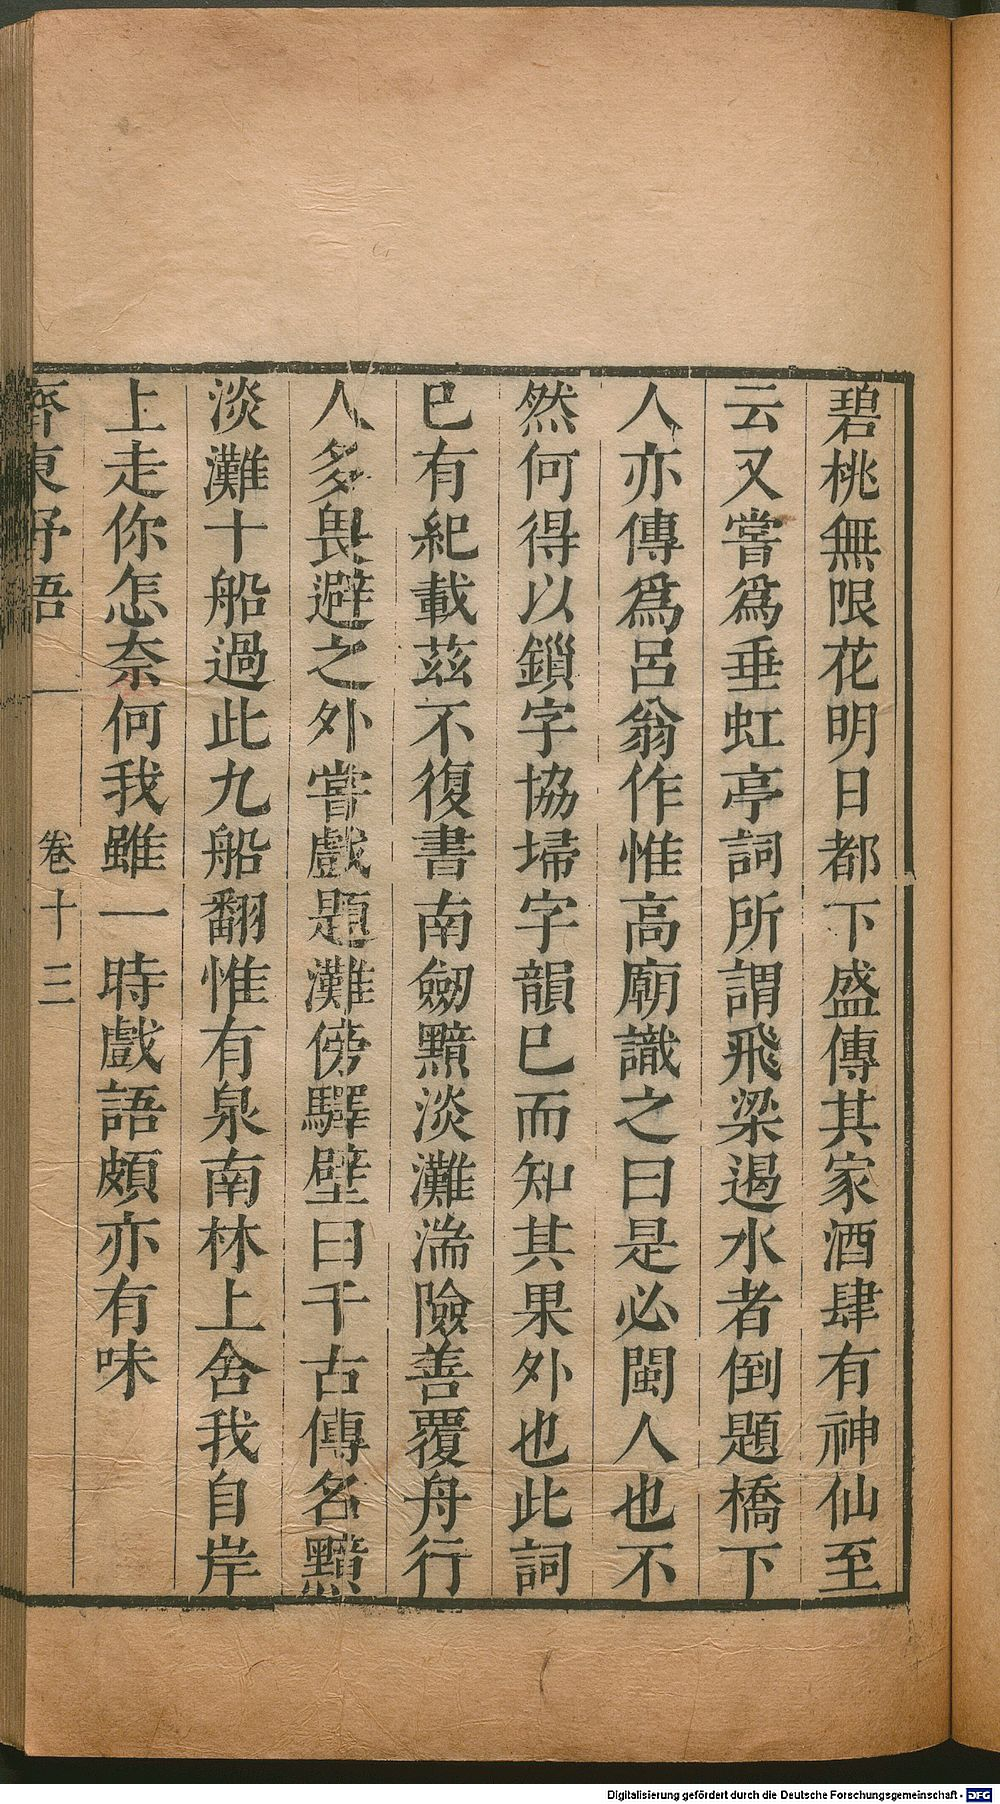 碧桃無限花明日都下盛傳其家酒肆有神仙至
云又嘗爲垂虹亭詞所謂飛梁遏水者倒題橋下
人亦傳爲呂翁作惟高廟識之曰是必閩人也不
然何得以鎻字協埽字韻已而知其果外也此詞
已有紀載茲不復書南劒黯淡灘湍險善覆舟行
人多畏避之外嘗戲題灘傍驛壁曰千古傳名黯
淡灘十船過此九船翻惟有泉南林上舍我自岸
上走你怎奈何我雖一時戲語頗亦有味
齊東野語 卷十三
Digitalisierung gefördert durch die Deutsche Forschungsgemeinschaft - DFG